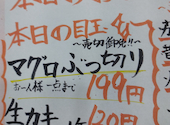 本日の目玉
〜売切御免!!〜
マグロぶつ切り
お一人様一点まで
199円
生カキ
120円